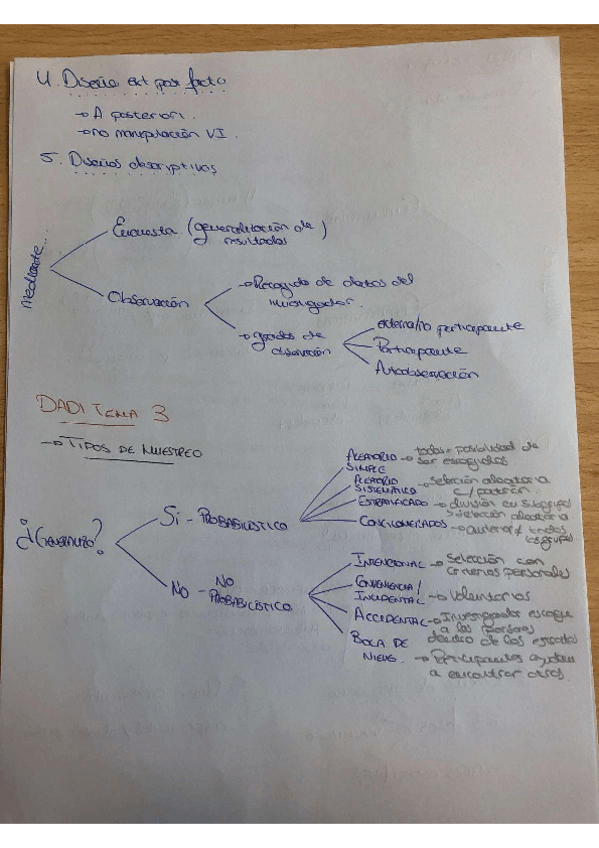 4. Diseño ext pos facto
→ A posteriori.
→ no manipulación VI.
5. Diseños descriptivos
Mediante...
Encuesta (generalización de
resultados)
Observación
→ Recogida de datos del
investigador.
→ grados de
observación
externa/no participante
Participante
Autoobservación
DADI TEMA 3
→ TIPOS DE MUESTREO
¿ ?
Sí - PROBABILÍSTICO
ALEATORIO SIMPLE → todos = posibilidad de
ser escogidos
ALEATORIO SISTEMÁTICO → selección aleatoria
c/ patrón.
ESTRATIFICADO → división en subgrupos
selección aleatoria
CONGLOMERADOS → anterior ≠ todos
los grupos
NO - NO
PROBABILÍSTICO
INTENCIONAL → Selección con
criterios personales
CONVENIENCIA/
INCIDENTAL → Voluntarios
ACCIDENTAL → Investigador escoge
a las personas
dentro de los
BOLA DE
NIEVE. → Participantes ayudan
a encontrar otros.